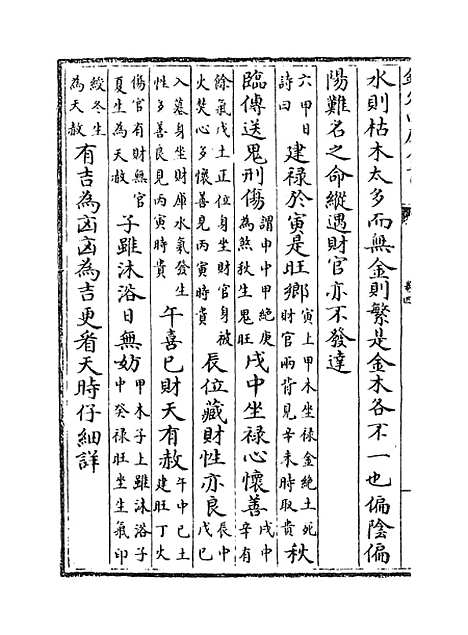 水則枯木太多而無金則繁是金木各不一也偏陰偏
陽難名之命縱遇財官亦不發達
六甲日
詩曰
建禄於寅是旺鄉
寅上甲木坐禄金絶土死
財官兩背見辛未時取貴
秋
臨傳送鬼刑傷
謂申中甲絶庚
為煞秋生鬼旺
戌中坐禄心懷善
戌中
辛有
餘氣戊土正位身坐財官身被
火焚心多懷善見丙寅時貴
辰位藏財性亦良
辰中
戊巳
入墓身坐財庫水氣發生
性多善良見丙寅時貴
午喜巳財天有赦
午中巳土
建旺丁火
傷官有財無官
夏生為天赦
子雖沐浴日無妨
甲木子上雖沐浴子
中癸禄旺坐生氣印
綬冬生
為天赦
有吉為㐫㐫為吉更看天時仔細詳